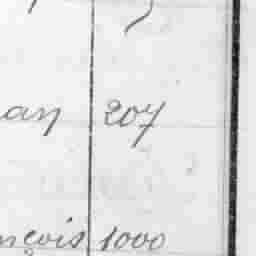 an 207
nçois 1000